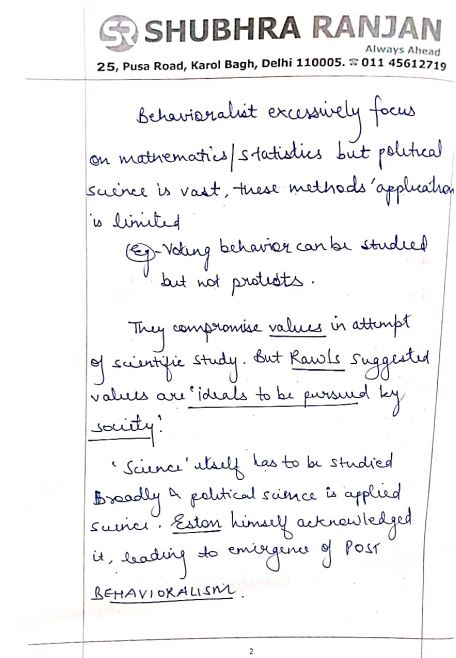 SR SHUBHRA RANJAN
Always Ahead
25, Pusa Road, Karol Bagh, Delhi 110005. ☎ 011 45612719
Behavioralist excessively focus
on mathematics/statistics but political
science is vast, these methods' application
is limited
Eg - Voting behavior can be studied
but not protests.
They compromise values in attempt
of scientific study. But Rawls suggested
values are 'ideals to be pursued by
society'.
'Science' itself has to be studied
Broadly & political science is applied
science. Eston himself acknowledged
it, leading to emergence of POST
BEHAVIORALISM.
2